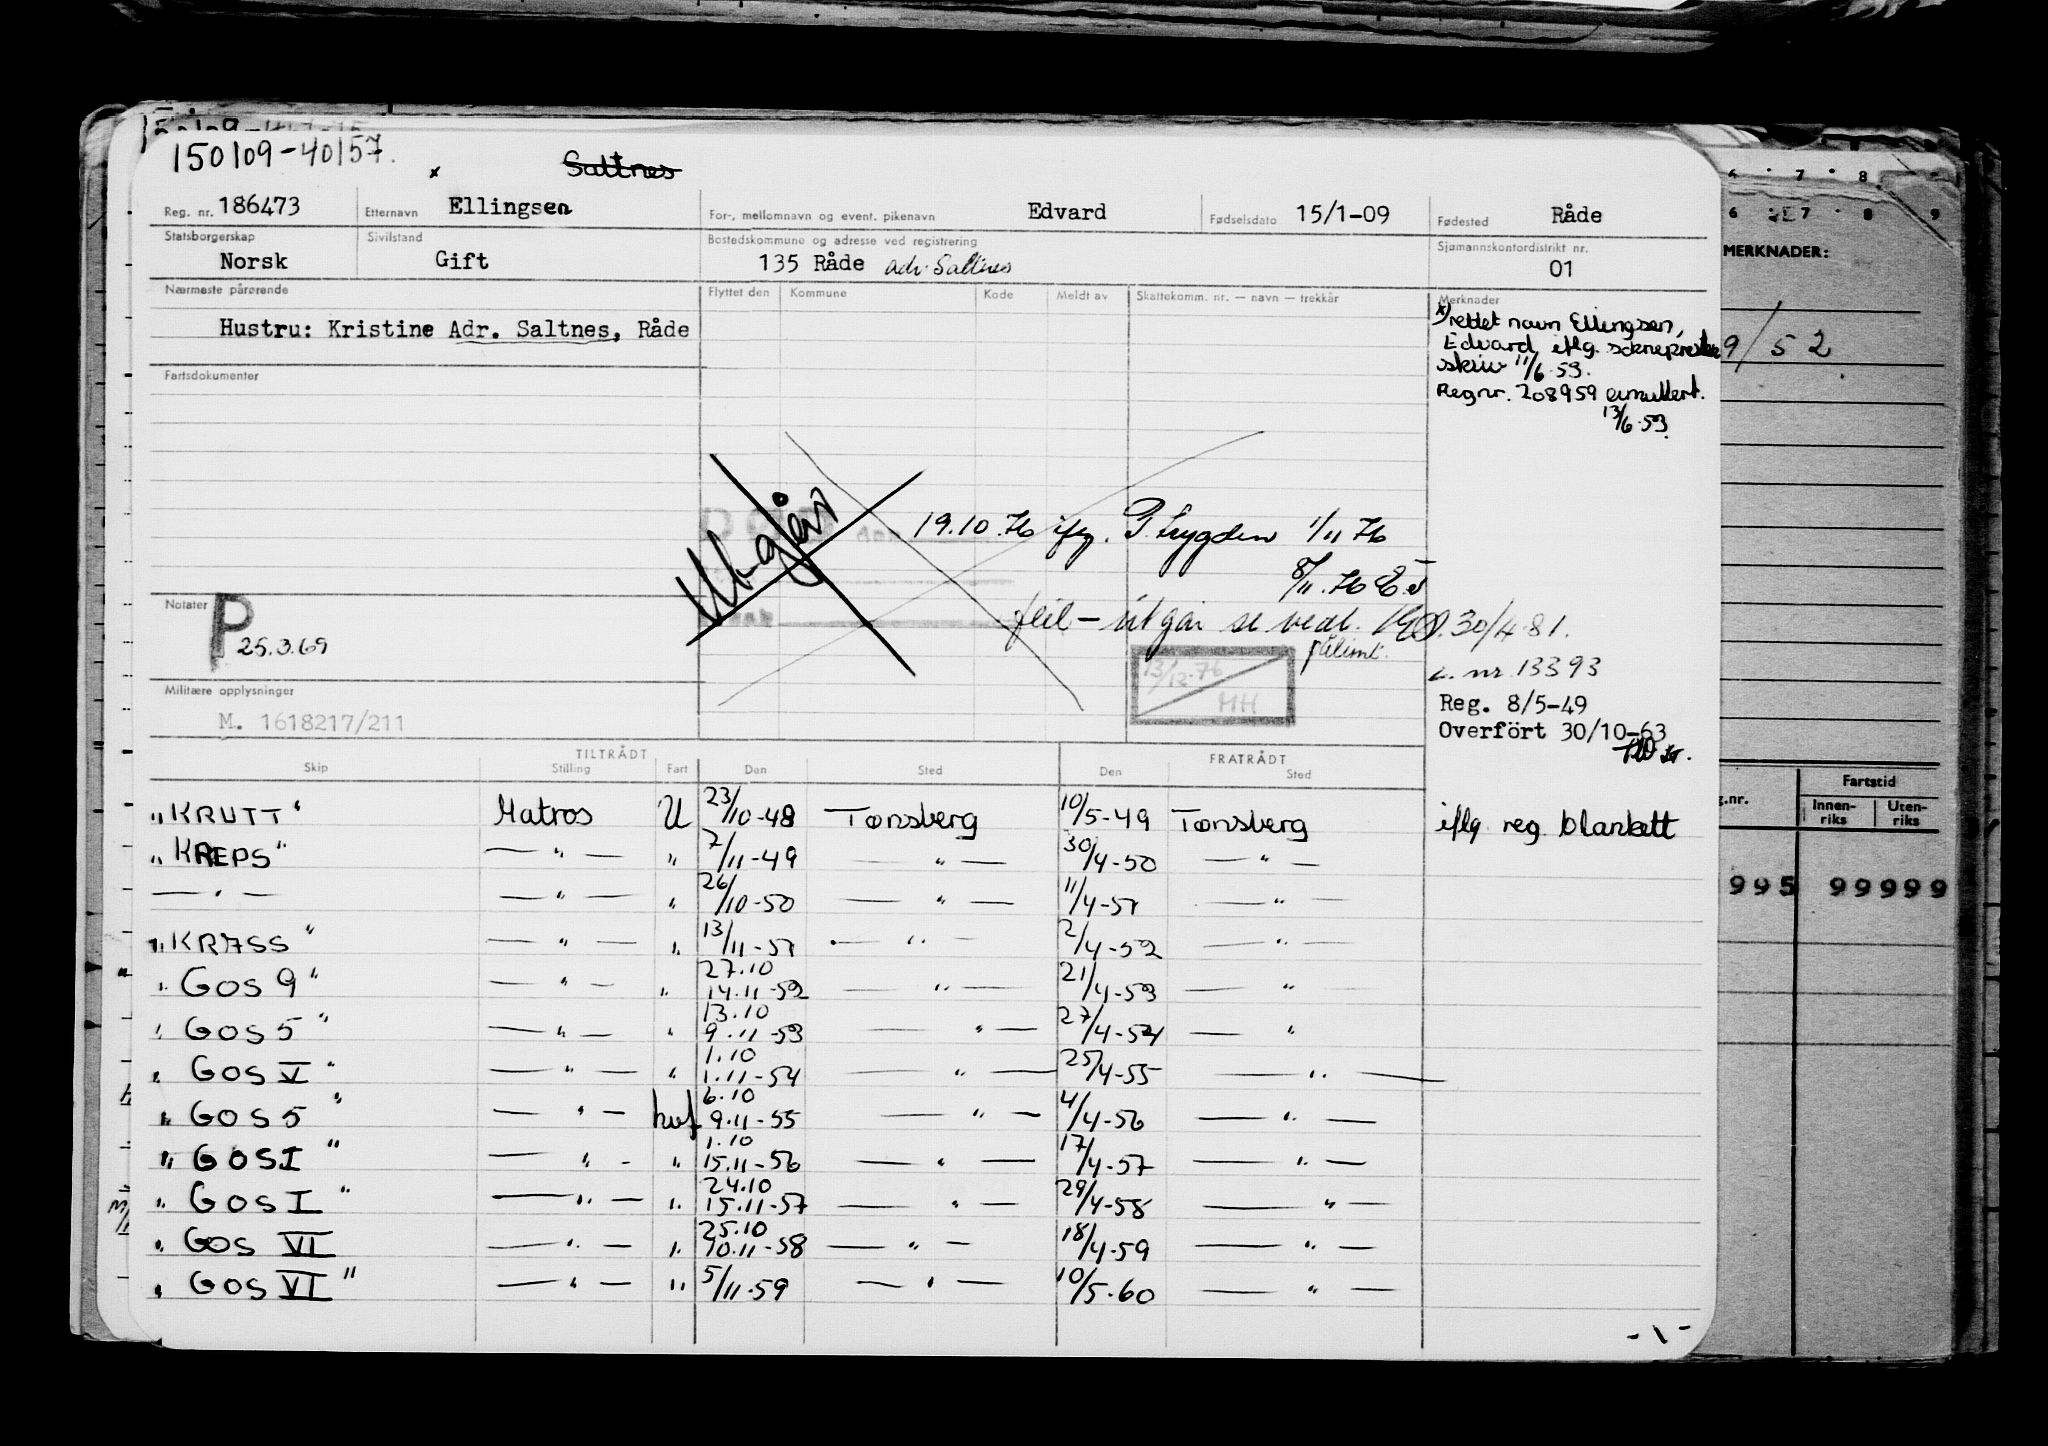 150109-40157.
x Saltnes
Reg. nr. 186473 Etternavn Ellingsen For-, mellomnavn og event. pikenavn Edvard Fødselsdato 15/1-09 Fødested Råde
Statsborgerskap Sivilstand Bostedskommune og adresse ved registrering Sjømannskontordistrikt nr.
Norsk Gift 135 Råde adr. Saltnes 01
Nærmeste pårørende Flyttet den Kommune Kode Meldt av Skattekomm. nr. — navn — trekkår Merknader
Hustru: Kristine Adr. Saltnes, Råde
x) rettet navn Ellingsen,
Edvard iflg.
skriv 11/6-53.
Regnr. 208959 annullert.
13/6-53.
Fartsdokumenter
Utgår
19.10.76 iflg. P.trygden 1/11 76
8/11.76
feil - utgår se vedl. 30/4-81.
Notater P 25.3.69
13/12-76
HH
L. nr 13393
Militære opplysninger
M. 1618217/211
Reg. 8/5-49
Overfört 30/10-63
TILTRÅDT FRATRÅDT
Skip Stilling Fart Den Sted Den Sted
"KRUTT" Matros U 23/10-48 Tønsberg 10/5-49 Tønsberg iflg reg. blankett
"KREPS" — " — " 7/11-49 — " — 30/4-50 — " —
— " — — " — " 26/10-50 — " — 11/4-51 — " —
"KRASS" — " — " 13/11-51 — " — 2/4-52 — " —
"GOS 9" — " — " 27.10 14.11-52 — " — 21/4-53 — " —
"GOS 5" — " — " 13.10 9.11-53 — " — 27/4-54 — "
"GOS V" — " — " 1.10 1.11-54 — " — 25/4-55 — " —
"GOS 5" — " — hvf 6.10 9.11-55 — " — 4/4-56 — " —
"GOS I" — " - " 1.10 15.11-56 — " — 17/4-57 — " —
"GOS I" — " — " 24.10 15.11-57 — " — 29/4-58 — " —
"GOS VI — " — " 25.10 10.11-58 — " — 18/4-59 — " —
"GOS VI" — " — " 5/11-59 — " — 10/5-60 — " —
- 1 -
6 7 8
6 7 8 9
MERKNADER:
9/52
Fartstid
g.nr. Innen-riks Uten-riks
995 99999